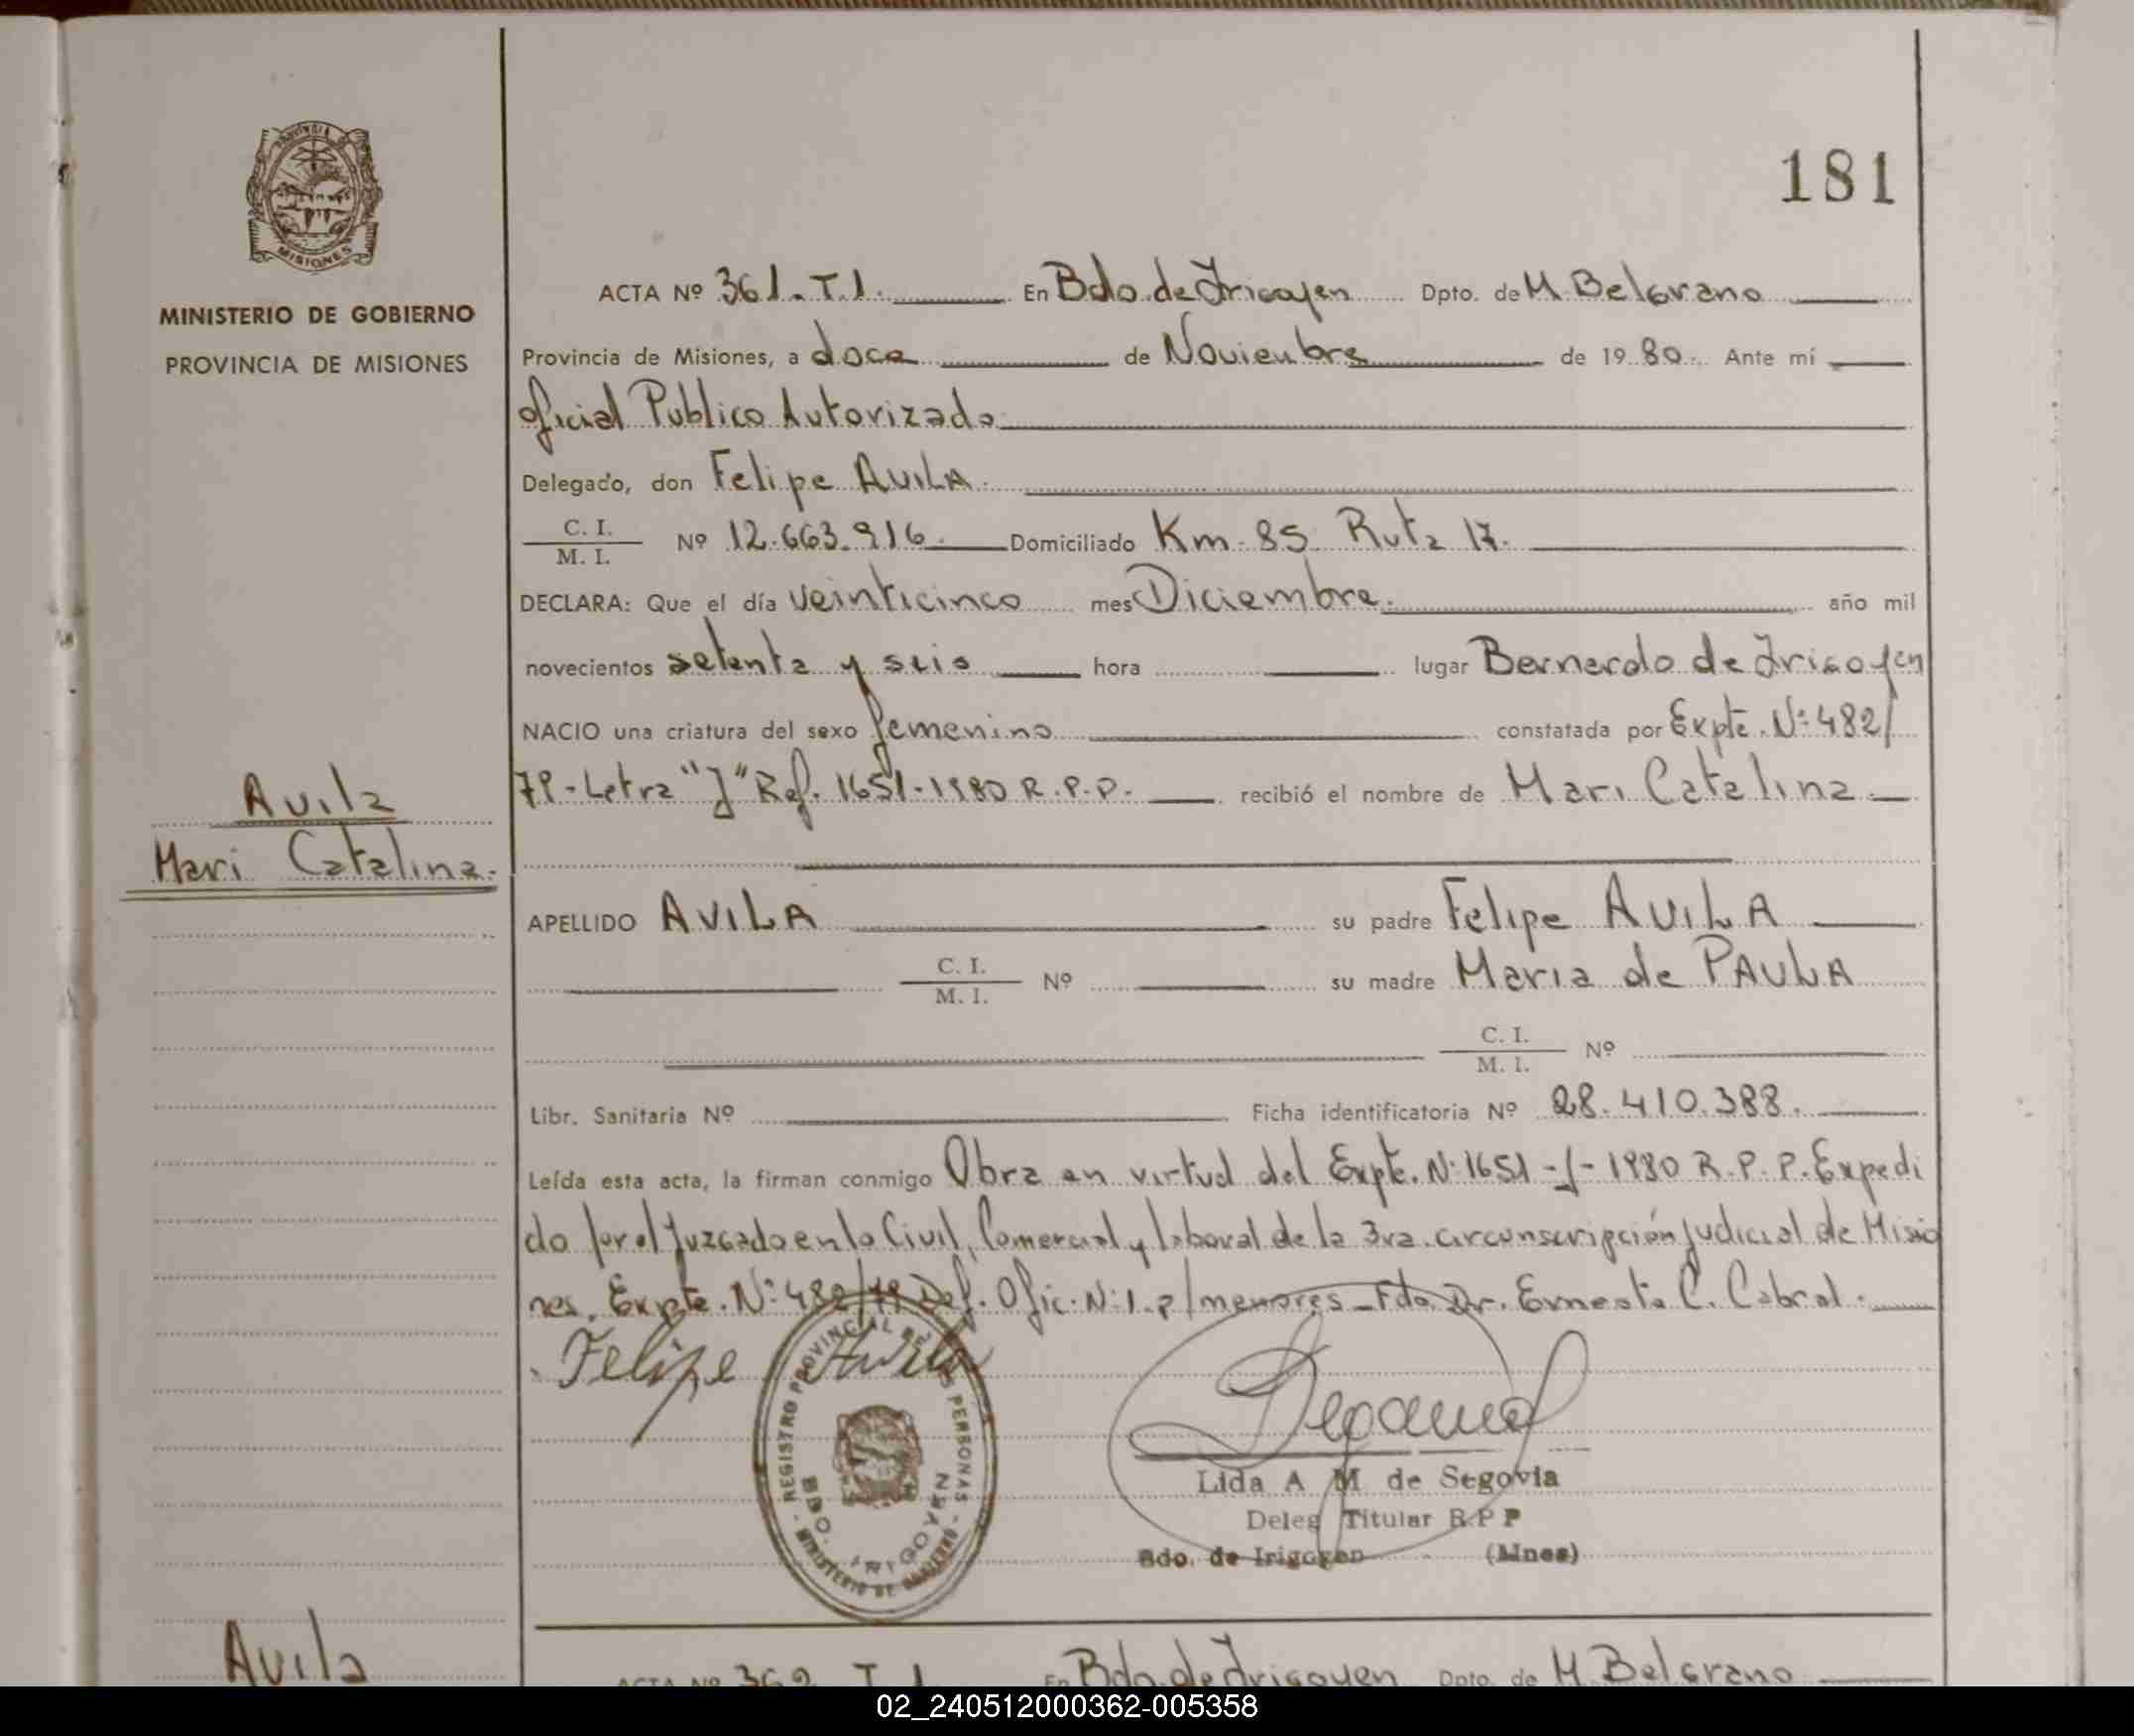 181
PROVINCIA
MISIONES
MINISTERIO DE GOBIERNO
PROVINCIA DE MISIONES
ACTA Nº 361. T.1. En Bdo. de Irigoyen Dpto. de M. Belgrano
Provincia de Misiones, a doce de Noviembre de 1980. Ante mí
oficial Publico Autorizado
Delegado, don Felipe AVILA.
C. I.
M. I. Nº 12.663.916. Domiciliado Km. 85 Ruta 17.
DECLARA: Que el día veinticinco mes Diciembre. año mil
novecientos setenta y seis hora lugar Bernardo de Irigoyen
NACIO una criatura del sexo femenino constatada por Expte. Nº 482/
79-Letra "J" Ref. 1651-1980 R.P.P. recibió el nombre de Mari Catalina
Avila
Mari Catalina.
APELLIDO AVILA su padre Felipe AVILA
C. I.
M. I. Nº su madre Maria de PAULA
C. I.
M. I. Nº
Libr. Sanitaria Nº Ficha identificatoria Nº 28.410.388.
Leída esta acta, la firman conmigo Obra en virtud del Expte. Nº 1651-J-1980 R.P.P. Expedi
do por el Juzgado en lo Civil, Comercial y laboral de la 3ra. circunscripción judicial de Misio
nes. Expte. Nº 482/79 Def. Ofic. Nº 1. p/menores - Fdo. Dr. Ernesto C. Cabral.
Felipe Avila
REGISTRO PROVINCIAL DE LAS PERSONAS
BDO. IRIGOYEN
MINISTERIO DE GOBIERNO
Lida A M de Segovia
Deleg Titular R.P P
Bdo. de Irigoyen (Mnes)
Avila
ACTA Nº 362 T. 1 En Bdo. de Irigoyen Dpto. de M. Belgrano
02_240512000362-005358